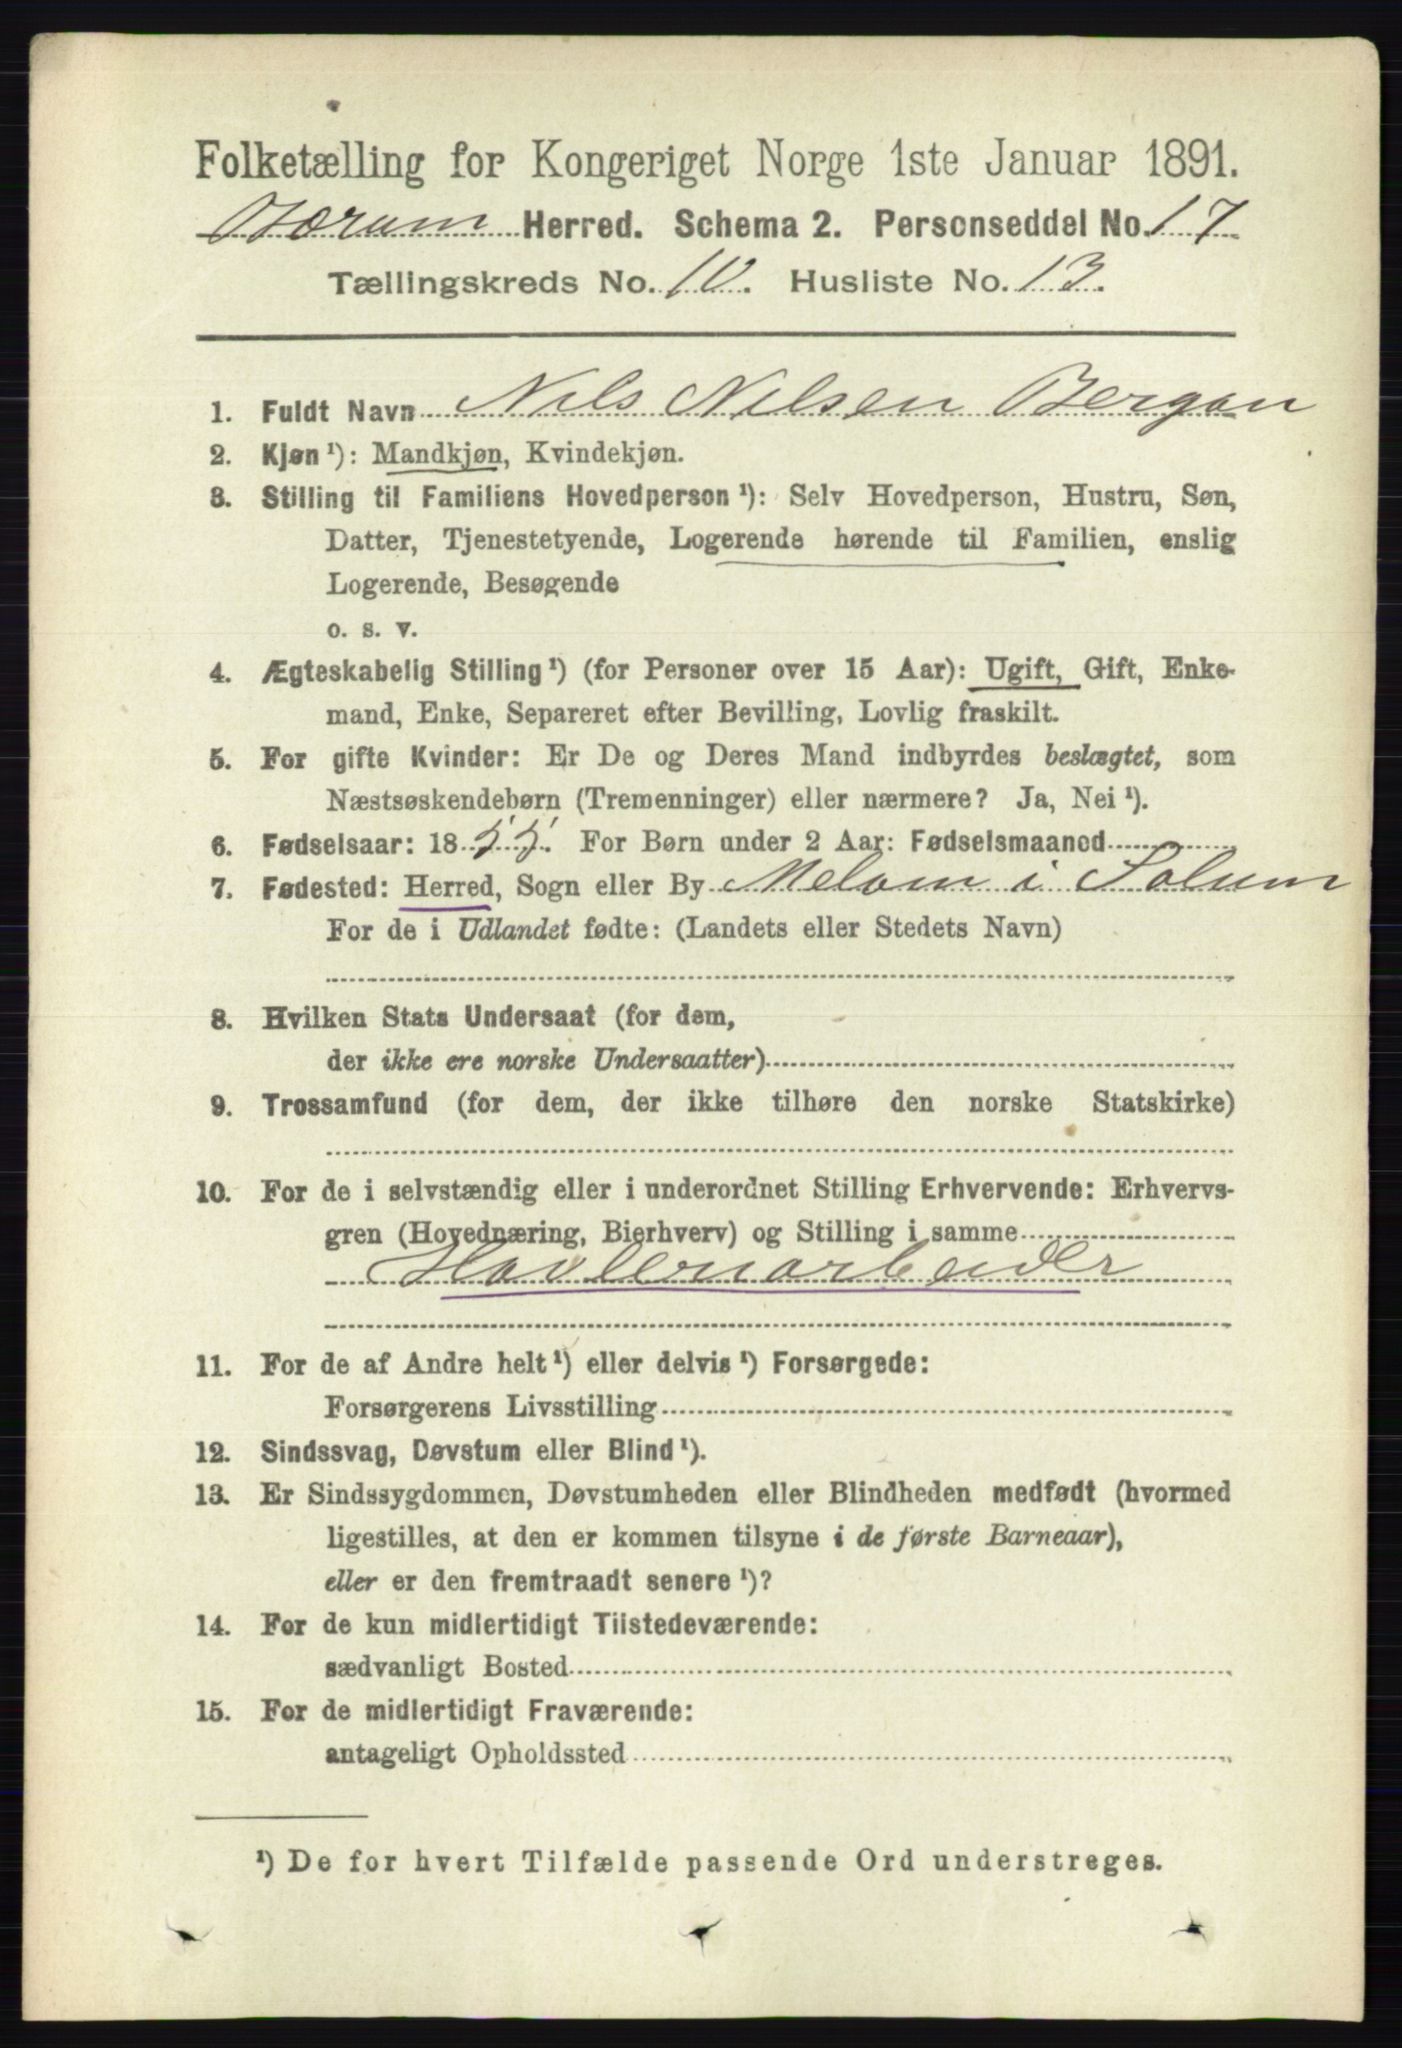 Folketælling for Kongeriget Norge 1ste Januar 1891.
Bærum Herred. Schema 2. Personseddel No. 17
Tællingskreds No. 10. Husliste No. 13.
1. Fuldt Navn Nils Nilsen Bergan
2. Kjøn ¹): Mandkjøn, Kvindekjøn.
3. Stilling til Familiens Hovedperson ¹): Selv Hovedperson, Hustru, Søn,
Datter, Tjenestetyende, Logerende hørende til Familien, enslig
Logerende, Besøgende
o. s. v.
4. Ægteskabelig Stilling ¹) (for Personer over 15 Aar): Ugift, Gift, Enke-
mand, Enke, Separeret efter Bevilling, Lovlig fraskilt.
5. For gifte Kvinder: Er De og Deres Mand indbyrdes beslægtet, som
Næstsøskendebørn (Tremenninger) eller nærmere? Ja, Nei ¹).
6. Fødselsaar: 1855. For Børn under 2 Aar: Fødselsmaaned
7. Fødested: Herred, Sogn eller By Melom i Solum
For de i Udlandet fødte: (Landets eller Stedets Navn)
8. Hvilken Stats Undersaat (for dem,
der ikke ere norske Undersaatter)
9. Trossamfund (for dem, der ikke tilhøre den norske Statskirke)
10. For de i selvstændig eller i underordnet Stilling Erhvervende: Erhvervs-
gren (Hovednæring, Bierhverv) og Stilling i samme
Høvleriarbeider
11. For de af Andre helt ¹) eller delvis ¹) Forsørgede:
Forsørgerens Livsstilling
12. Sindssvag, Døvstum eller Blind ¹).
13. Er Sindssygdommen, Døvstumheden eller Blindheden medfødt (hvormed
ligestilles, at den er kommen tilsyne i de første Barneaar),
eller er den fremtraadt senere ¹)?
14. For de kun midlertidigt Tilstedeværende:
sædvanligt Bosted
15. For de midlertidigt Fraværende:
antageligt Opholdssted
¹) De for hvert Tilfælde passende Ord understreges.